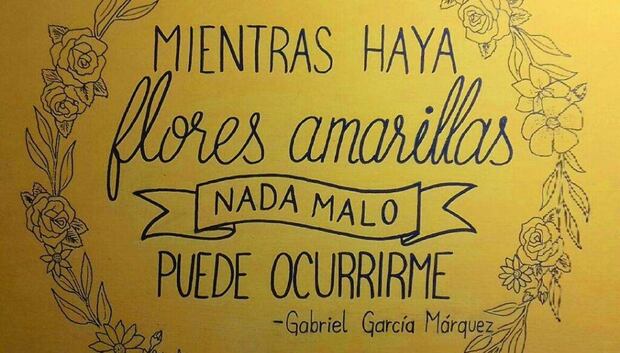 MIENTRAS HAYA
flores amarillas
NADA MALO
PUEDE OCURRIRME
-Gabriel García Márquez